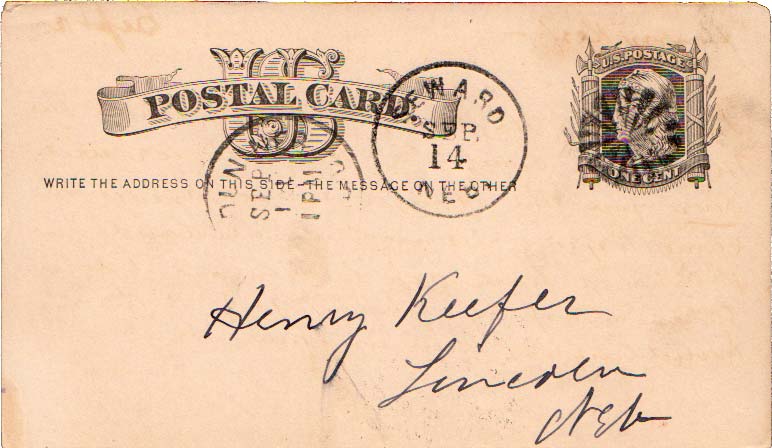 US
POSTAL CARD.
U.S. POSTAGE
ONE CENT
SEWARD
SEP.
14
NEB
SEP
1 PM
WRITE THE ADDRESS ON THIS SIDE - THE MESSAGE ON THE OTHER
Henry Keefer
Lincoln
Neb